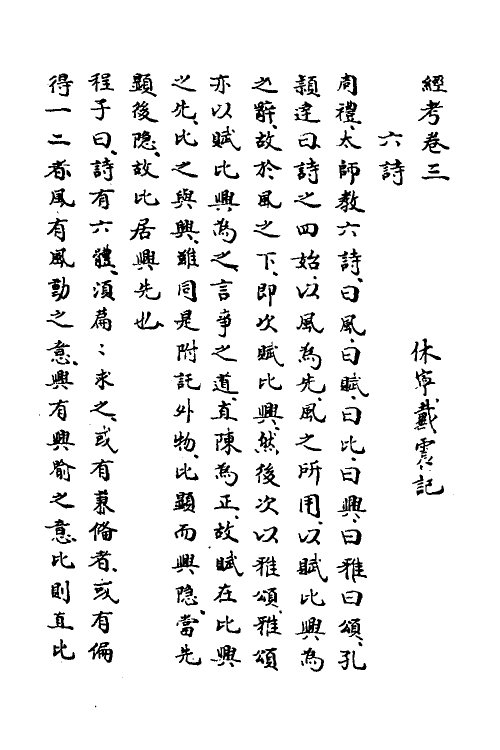 經考卷三
休寧戴震記
六詩
周禮太師教六詩、曰風、曰賦、曰比、曰興、曰雅曰頌、孔
穎達曰、詩之四始、以風為先、風之所用、以賦比興為
之辭、故於風之下、即次賦比興、然後次以雅頌、雅頌
亦以賦比興為之、言事之道、直陳為正、故賦在比興
之先、比之與興、雖同是附託外物、比顯而興隐、當先
顯後隐、故比居興先也、
程子曰、詩有六體、湏篇〻求之、或有兼俻者、或有偏
得一二者、風有風動之意、興有興喻之意、比則直比